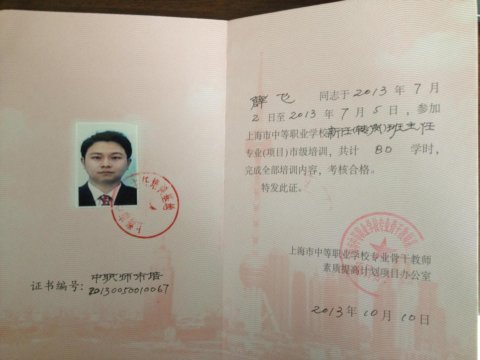 薛飞 同志于2013年7月
2日至2013年7月5日,参加
上海市中等职业学校新任 班主任
专业(项目)市级培训,共计 80 学时,
完成全部培训内容,考核合格。
特发此证。
上海市中等职业学校专业骨干教师
素质提高计划项目办公室
2013年10月10日
中职师市培
证书编号:20130050010067